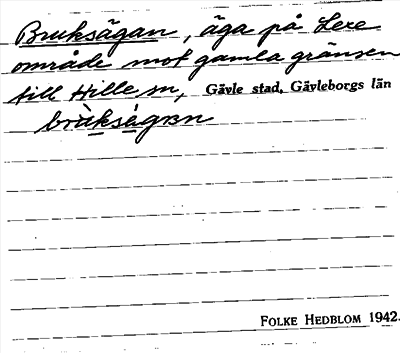 Bruksägan, äga på Lexe
område mot gamla gränsen
till Hille sn, Gävle stad, Gävleborgs län
brùksègɐn
FOLKE HEDBLOM 1942.